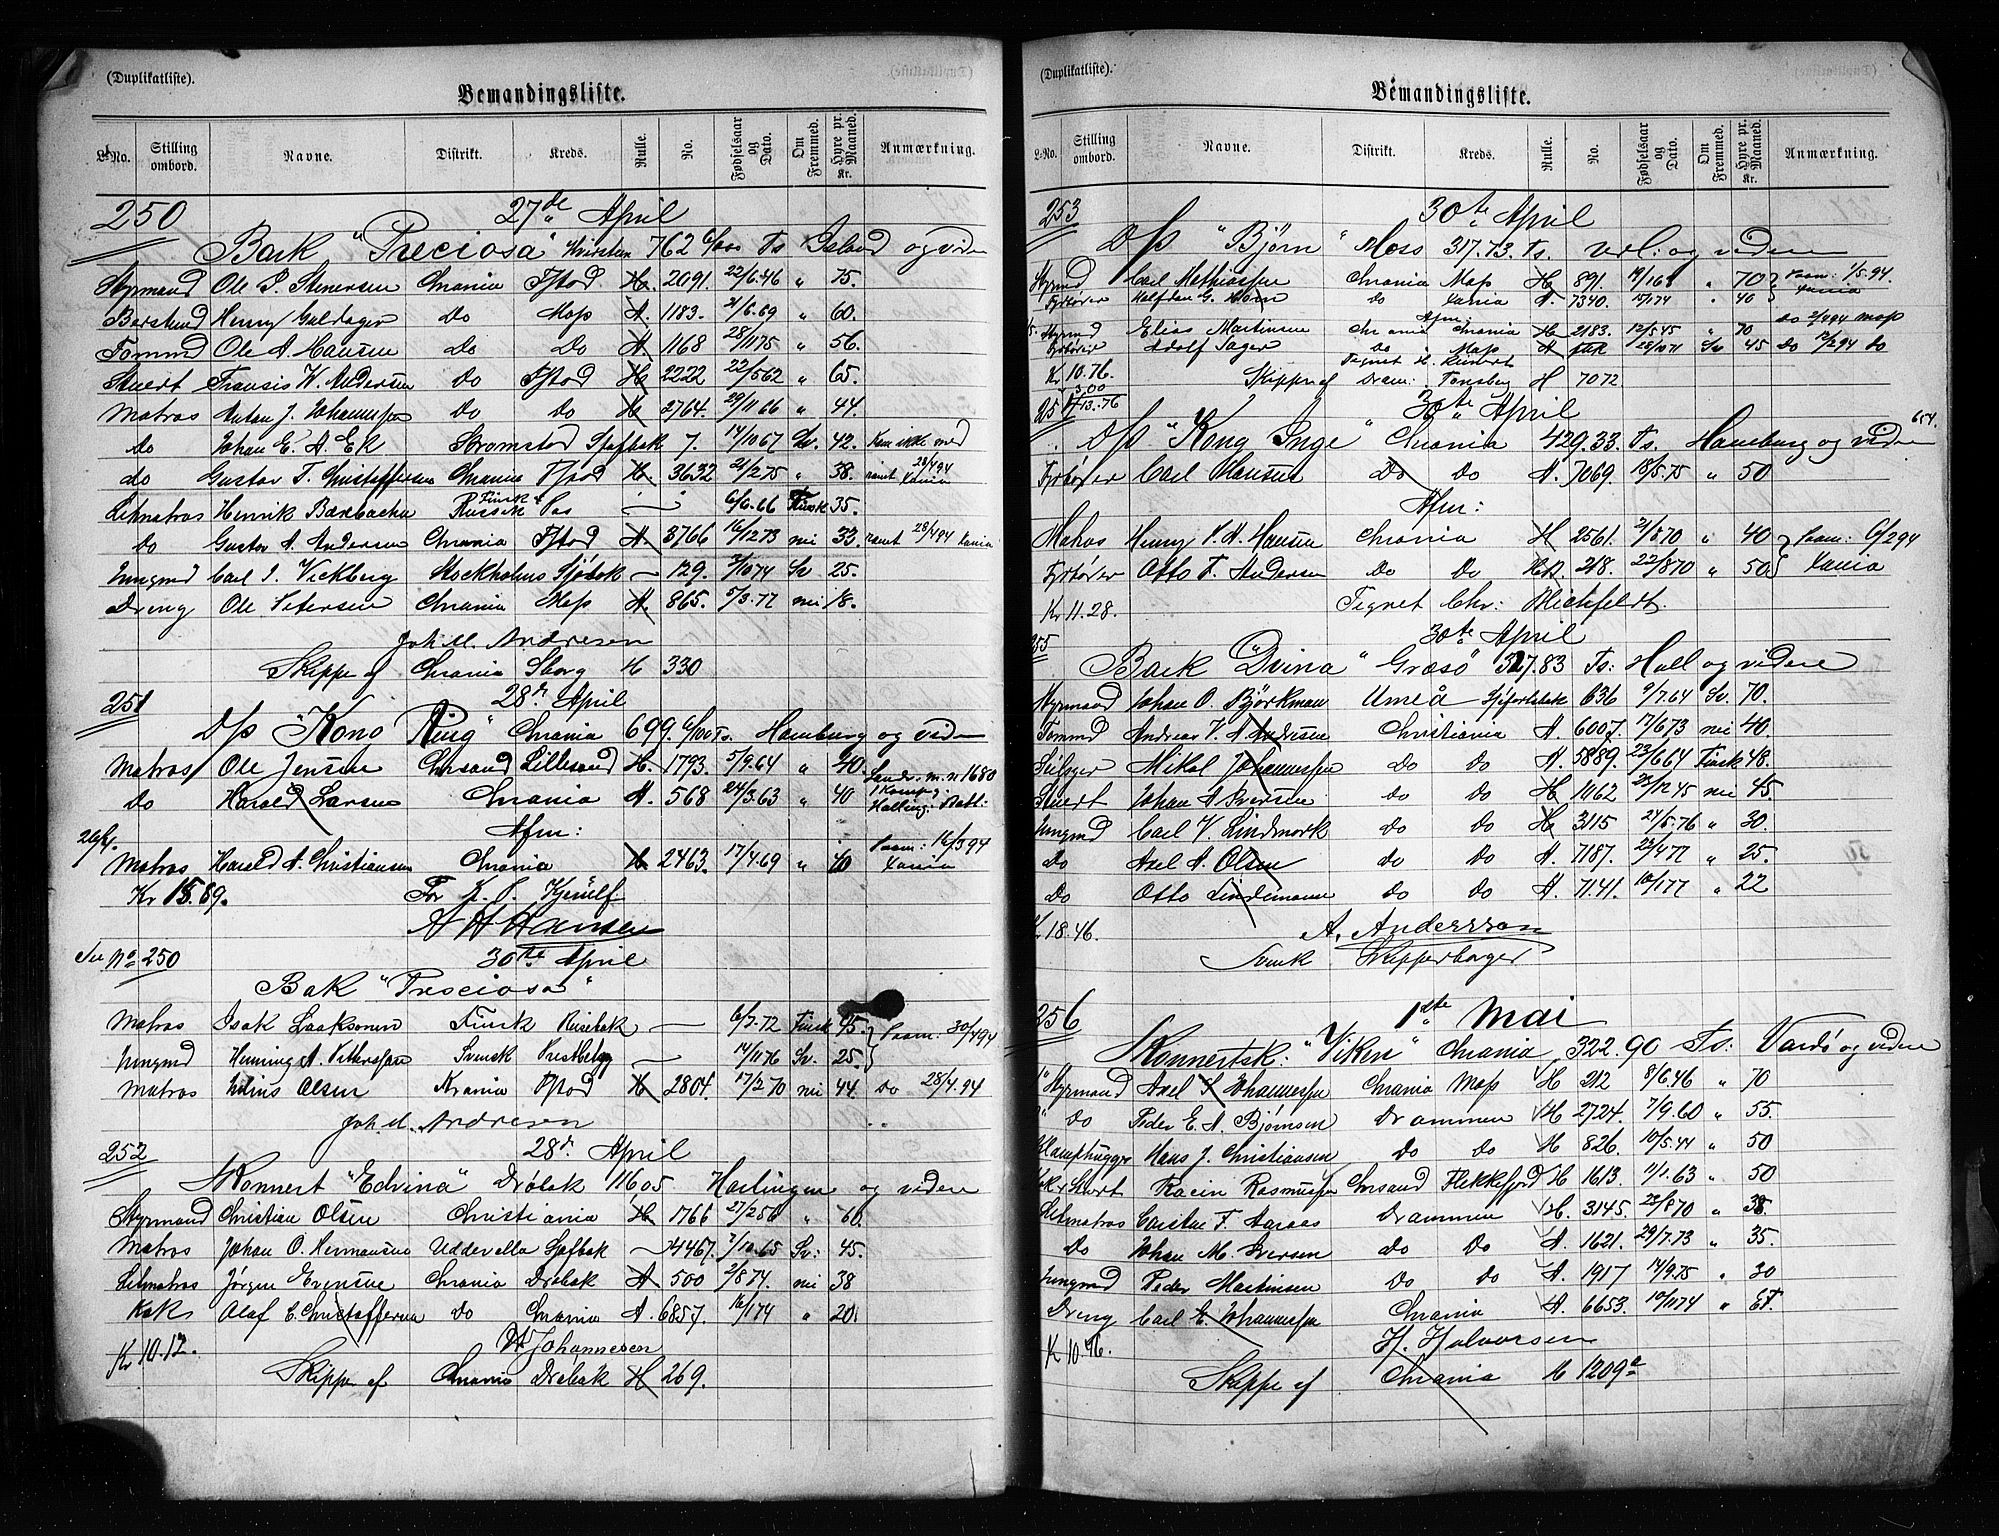 (Duplikatliste).
Bemandingsliste.
L-No. Stilling ombord. Navne. Distrikt. Kreds. Rulle. No. Fødselsaar og Dato. Om Fremmed. Hyre pr. Maaned. Kr. Anmærkning.
250 27de April
Bark "Preciosa" 762 Ts Island og videre
Styrmand Ole P. Stenersen Chrania Fstad H. 2091. 22/6.46 " 75.
Henry Guldager do Mos A. 1183. 21/6.69 " 60.
Tømmd Ole A. Hansen do Do A 1168 28/1175 " 56.
Stuert Fransis W. Andersen do Fstad H 2222 22/562 " 65.
Matros Anton J. Johannesen Do Do H 2764. 29/11 66 " 44.
do Johan E. A. Ek Strømstad Sjøfbok 7. 14/1067 Sv. 42. Kan ikke med
do Gustav T. Christoffersen Chrania Fstad H. 3632 21/275 " 38. rømt 28/494 Xania
Letmatros Henrik Russisk Pas 6/6.66 Finsk 35.
Do Gustav A. Andersen Chrania Fstad A. 3766 16/1273 nei 33. rømt 28/494 Xania
Jungmd Carl J. Vickberg Stockholms Sjöbok — 129. 3/1074 Sv 25.
Dreng Ole Petersen Chrania Mos A. 865. 5/3.77 nei 18.
Joh. M. Andresen
Skipper af Chrania Sborg H 330
251 28de April
D/S "Kong Ring" Chrania 699. 6/100 Ts. Hamburg og videre
Matros Ole Jensen Chrsand Lillesand H. 1793. 5/9.64 " 40.
do Harald Larsen Chrania A. 568 24/3.63 " 40
Afm:
Matros Harald A. Christiansen Chrania H 2463. 17/4.69 " 40 Paam: 16/394 Xania
Kr 15.89. For K. T. Kjerulf
A H Hansen
Se No 250 30te April
Bark "Preciosa"
Matros Isak Laaksonen Finsk Reisebok — 6/7.72 Finsk 45. Paam: 30/494
Jungmd Henning A. Pettersson Svensk Prestbetyg — 14/1176 Sv. 25.
Matros Julius Olsen Krania Fstad H 2804. 17/270 nei 44 Do 28/4.94
Joh. M. Andresen
252 28de April
Skonnert "Edvina" Drøbak 116 05 Harlingen og videre
Styrmand Christian Olsen Christiania H 1766 27/256 " 60.
Matros Johan O. Hermansen Uddevalla Sjøfbok — 4467. 7/10.65 Sv: 45.
Letmatros Jørgen Evensen Chrania Drøbak A 500 2/874. nei 38
Kok Olaf E. Christoffersen Do Chrania A. 6857. 16/174 " 20.
Kr 10.12. Johannesen
Skipper af Chrania Drøbak H 269.
(Duplikatliste).
Bemandingsliste.
L-No. Stilling ombord. Navne. Distrikt. Kreds. Rulle. No. Fødselsaar og Dato. Om Fremmed. Hyre pr. Maaned. Kr. Anmærkning.
253 30te April
D/S "Bjørn" Moss 317.73. Ts. og videre
Styrmd Carl Mathiassen Chrania Mos H 891. " 70 Paam: 1/5.94
Fyrbøter Halfdan G. Horn do Xania A. 7340. " 40 Xania
Afm:
Styrmd Elias Martinsen Chrania Chrania H 2183. 12/545 " 70 do 2/294 Mos
Fyrbøter Adolf Do Mos A Sv 45 do do
Kr 10.76. Skipper af Dram: Tønsberg H 7072
3.00
13.76
30te April
D/S "Kong Inge" Chrania 429.33. Ts. Hamburg og videre
Fyrbøter Carl Hansen Do Do A. 7069. 18/5.75 " 50
Afm:
Matros Henry P. A. Hansen Chrania H 2561. 21/870 " 40 Paam: 6/294
Fyrbøter Otto T. Andersen Do Do 218. 22/870 " 50 Xania
Kr 11.28. Tegnet Chr:
255 30te April
Bark "Dvina" Græsö 327.83 Ts: Hull og videre
Styrmand Johan O. Björkman Umeå 636 9/7.64 Sv. 70.
Tømmd Andreas Andersen Christiania A. 6007. 17/673 nei 40.
Seilsyer Mikal Johannessen do do A. 5889. 23/664 Finsk 48.
Stuert Johan A Iversen do do H 1062 nei 45.
Jungmd Carl V. Lindmark do do H 3115 24/5.76 " 30.
do Axel A. Olsen do do A. 7187. 22/477 " 25.
Do Otto Lindemann do do A. 7141. 10/177 " 22
Kr 18.46. A. Andersson
Svensk Skipperborger
256 1ste Mai
Skonnertsk: "Viken" Chrania 322.90 Ts: Vardø og videre
1ste Styrmand Axel Johannessen Chrania Mos H 212 8/6.46 " 70
Do Peder E. A. Bjørnsen Drammen H 2724. 7/9.60 " 55.
Hans J. Christiansen Do Do H 826. 10/5.44 " 50
Rasmussen Chrsand Flekkefjord H 1613. 11/1.63 " 50
Letmatros Carsten T. Aaraas Drammen H. 3145. 23/870 " 38.
Do Johan M. Iversen Do Do A. 1621. 29/7.73 " 35.
Jungmd Peder Martinsen Do Do A. 1917 14/9.75 " 30
Dreng Carl E. Johannessen Chrania A. 6653. 10/1174 "
Kr 10.96. H. Halvorsen
Skipper af Chrania H 1209